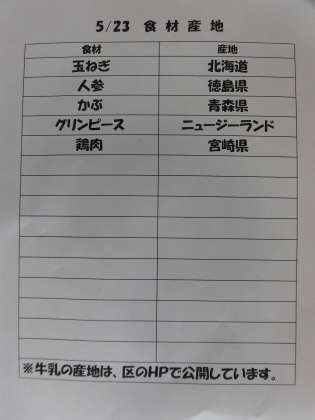 5/23 食材産地
食材 産地
玉ねぎ 北海道
人参 徳島県
かぶ 青森県
グリンピース ニュージーランド
鶏肉 宮崎県
※牛乳の産地は、区のHPで公開しています。